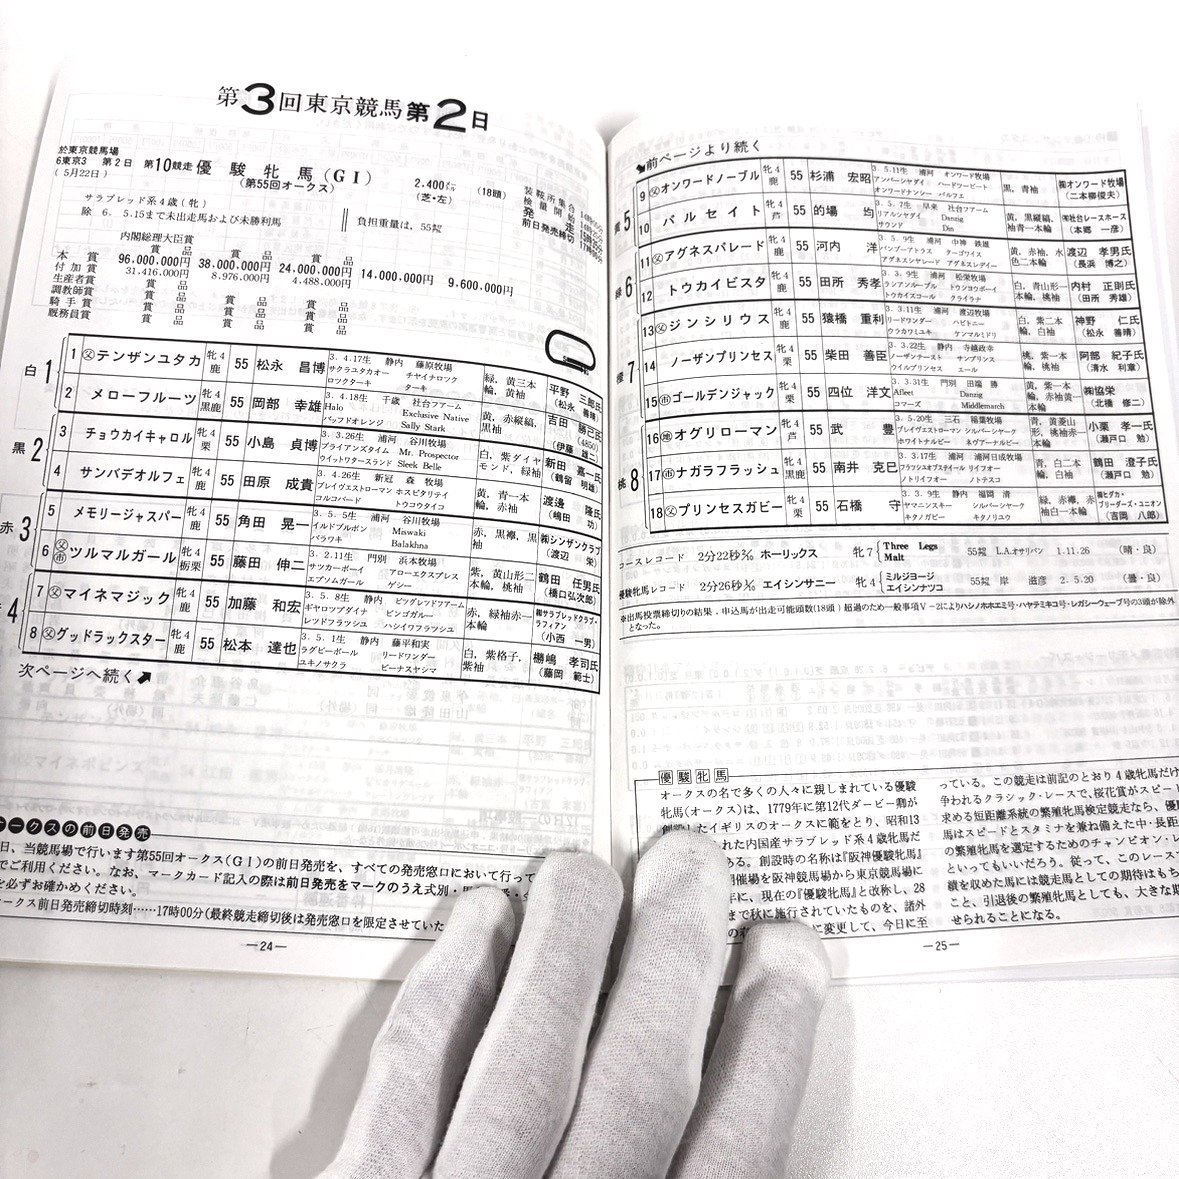 第3回東京競馬第2日
於東京競馬場
6東京3 第2日 第10競走 優駿牝馬(GI)
(5月22日) (第55回オークス)
2.400メートル (芝・左) (18頭)
サラブレッド系4歳(牝)
除 6. 5.15まで未出走馬および未勝利馬
負担重量は、55キロ
内閣総理大臣賞
本賞 96,000,000円 38,000,000円 24,000,000円 14,000,000円 9,600,000円
付加賞 31,416,000円 8,976,000円 4,488,000円
生産者賞 賞品 賞品 賞品
調教師賞 賞品 賞品 賞品
騎手賞 賞品 賞品 賞品
厩務員賞 賞品 賞品 賞品
白1
1 父テンザンユタカ 牝4鹿 55 松永昌博 3.4.17生 静内 藤原牧場 サクラユタカオー チヤイナロツク ロツクターキ ターキ 緑,黄三本輪,黄袖 平野三郎氏(松永善晴)
2 メローフルーツ 牝4黒鹿 55 岡部幸雄 3.4.18生 千歳 社台ファーム Halo Exclusive Native バッフドオレンジ Sally Stark 黄,赤縦縞,黒袖 吉田勝己氏(伊藤雄二)
黒2
3 チョウカイキャロル 牝4栗 55 小島貞博 3.3.26生 浦河 谷川牧場 ブライアンズタイム Mr. Prospector ウイットワタースランド Sleek Belle 白,紫ダイヤモンド,緑袖 新田嘉一氏(鶴留明雄)
4 サンバデオルフェ 牝4鹿 55 田原成貴 3.4.26生 新冠 森牧場 ブレイヴエストローマン ホスピタリテイ コルコバード トウコウタイコ 黄,青一本輪,赤袖 渡邊隆氏(嶋田功)
赤3
5 メモリージャスパー 牝4鹿 55 角田晃一 3.5.5生 浦河 谷川牧場 イルドブルボン Miswaki バラワキ Balakhna 赤,黒襷,黒袖 ㈱シンザンクラブ(渡辺栄)
6 父市ツルマルガール 牝4栃栗 55 藤田伸二 3.2.11生 門別 浜本牧場 サツカーボーイ アローエクスプレス エプソムガール ゲシー 紫,黄山形二本輪,桃袖 鶴田任男氏(橋口弘次郎)
4
7 父マイネマジック 牝4鹿 55 加藤和宏 3.5.8生 静内 ビッグレッドファーム ギヤロツプダイナ ビンゴガルー レッドフラッシュ ハシイワフラッシュ 赤,緑袖赤一本輪 ㈱サラブレッドクラブ・ラフィアン(小西一男)
8 父グッドラックスター 牝4鹿 55 松本達也 3.5.1生 静内 藤平和実 ラグビーボール リードワンダー ユキノサクラ ビーナスヤシマ 白,紫格子,紫袖 棚嶋孝司氏(藤岡範士)
次ページへ続く
オークスの前日発売
日、当競馬場で行います第55回オークス(GI)の前日発売を、すべての発売窓口において行って
でご利用ください。なお、マークカード記入の際は前日発売をマークのうえ式別・
を必ずお確かめください。
ークス前日発売締切時刻……17時00分(最終競走締切後は発売窓口を限定させていた
—24—
前ページより続く
5
9 父オンワードノーブル 牝4鹿 55 杉浦宏昭 3.5.11生 浦河 オンワード牧場 アンバーシヤダイ ハードツービート オンワードナンシー パルフエ 黒,青袖 ㈱オンワード牧場(二本柳俊夫)
10 パルセイト 牝4芦 55 的場均 3.5.7生 早来 社台ファーム リアルシヤダイ Danzig サウンド Din 黄,黒縦縞,袖青一本輪 ㈲社台レースホース(本郷一彦)
6
11 父アグネスパレード 牝4鹿 55 河内洋 3.5.9生 浦河 中神鉄雄 バンブーアトラス ターゴワイス アグネスシヤレード アグネスレデイー 黄,赤袖,水色二本輪 渡辺孝男氏(長浜博之)
12 トウカイビスタ 牝4鹿 55 田所秀孝 3.3.9生 浦河 松栄牧場 ランアンルーブル トウシヨウボーイ トウカイスコール クライラナ 白,青山形一本輪,桃袖 内村正則氏(田所秀雄)
7
13 父ジンシリウス 牝4鹿 55 猿橋重利 3.3.11生 浦河 渡辺牧場 リードワンダー ハビトニー ウラカワミユキ ケンマルミドリ 白,紫二本輪,白袖 神野仁氏(松永善晴)
14 ノーザンプリンセス 牝4栗 55 柴田善臣 3.3.22生 静内 寺越政幸 ノーザンテースト サンプリンス ウイルプリンセス エール 桃,紫一本輪,桃袖 阿部紀子氏(清水利章)
15 市ゴールデンジャック 牝4栗 55 四位洋文 3.3.31生 門別 田端勝 Afleet Danzig コマーズ Middlemarch 黄,紫一本輪,赤袖黄一本輪 ㈱協栄(北橋修二)
桃8
16 地オグリローマン 牝4芦 55 武豊 3.5.20生 三石 稲葉牧場 ブレイヴエストローマン シルバーシヤーク ホワイトナルビー ネヴアーナルビー 青,黄菱山形,桃袖赤一本輪 小栗孝一氏(瀬戸口勉)
17 市ナガラフラッシュ 牝4黒鹿 55 南井克巳 3.3.17生 浦河 浦河日成牧場 フラッシュオブスティール リイフオー ノトリイフオー ノトテスコ 青,白二本輪,白袖 鶴田澄子氏(瀬戸口勉)
18 父プリンセスガビー 牝4栗 55 石橋守 3.3.9生 静内 福岡清 ヤマニンスキー シルバーシヤーク キタノガビー キタノリユウ 緑,赤襷,赤袖白一本輪 ㈲ヒダカ・ブリーダーズ・ユニオン(吉岡八郎)
コースレコード 2分22秒2/10 ホーリックス 牝7 Three Legs Malt 55キロ L.A.オサリバン 1.11.26 (晴・良)
優駿牝馬レコード 2分26秒1/10 エイシンサニー 牝4 ミルジヨージ エイシンナツコ 55キロ 岸滋彦 2.5.20 (曇・良)
※出馬投票締切りの結果,申込馬が出走可能頭数(18頭)超過のため一般事項Ⅴ－2によりハシノホホエミ号・ハヤテミキコ号・レガシーウェーブ号の3頭が除外
となった。
優駿牝馬
オークスの名で多くの人々に親しまれている優駿
牝馬(オークス)は、1779年に第12代ダービー卿が
創設したイギリスのオークスに範をとり、昭和13
れた内国産サラブレッド系4歳牝馬だ
ある。創設時の名称は『阪神優駿牝馬』
開催場を阪神競馬場から東京競馬場に
年に、現在の『優駿牝馬』と改称し、28
まで秋に施行されていたものを、諸外
に変更して、今日に至
っている。この競走は前記のとおり4歳牝馬だけ
争われるクラシック・レースで、桜花賞がスピート
求める短距離系統の繁殖牝馬検定競走なら、優駿
馬はスピードとスタミナを兼ね備えた中・長距
の繁殖牝馬を選定するためのチャンピオン・レ
といってもいいだろう。従って、このレース
績を収めた馬には競走馬としての期待はもち
こと、引退後の繁殖牝馬としても、大きな期
せられることになる。
—25—